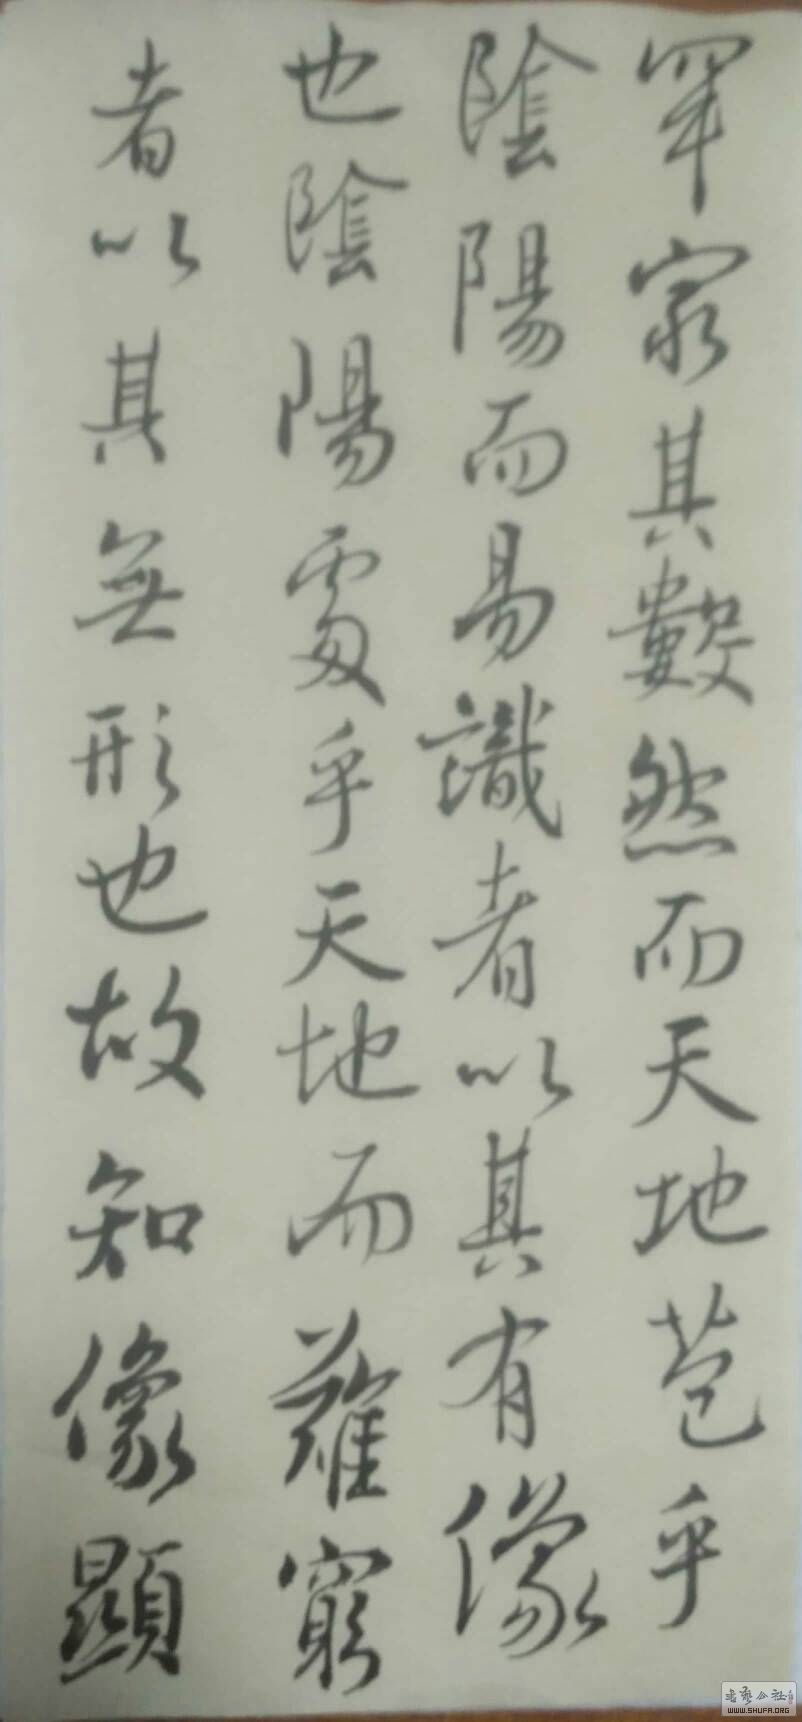 罕窮其數然而天地苞乎
陰陽而易識者以其有像
也陰陽處乎天地而難窮
者以其無形也故知像顯
书艺公社
WWW.SHUFA.ORG